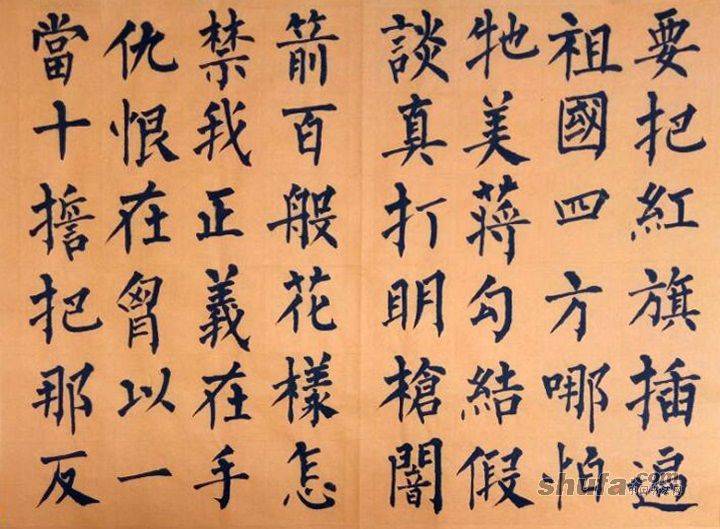 要把紅旗插遍
祖國四方哪怕
牠美蔣勾結假
談真打眀槍闇
箭百般花樣怎
禁我正義在手
仇恨在胷以一
當十誓把那反
shufa.com